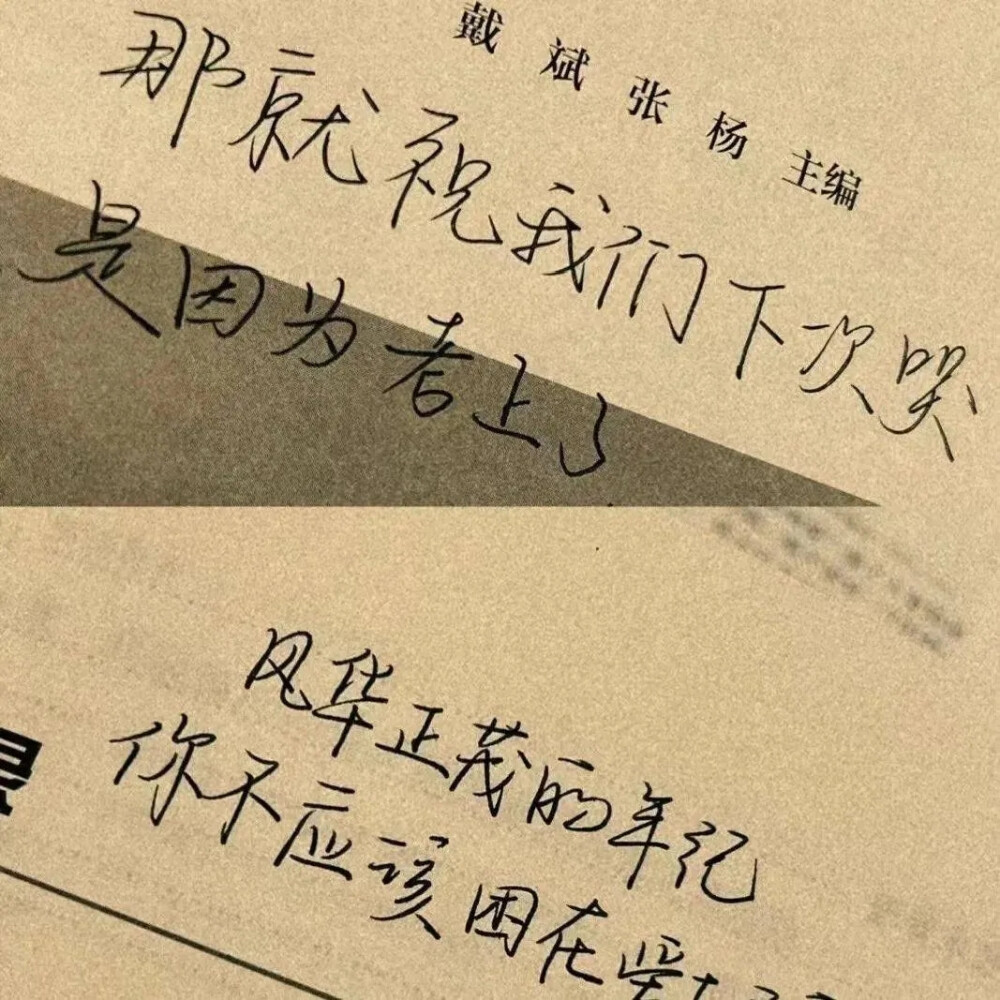 戴斌张杨 主编
那就祝我们下次哭
是因为考上了
风华正茂的年纪
你不应该困在柴